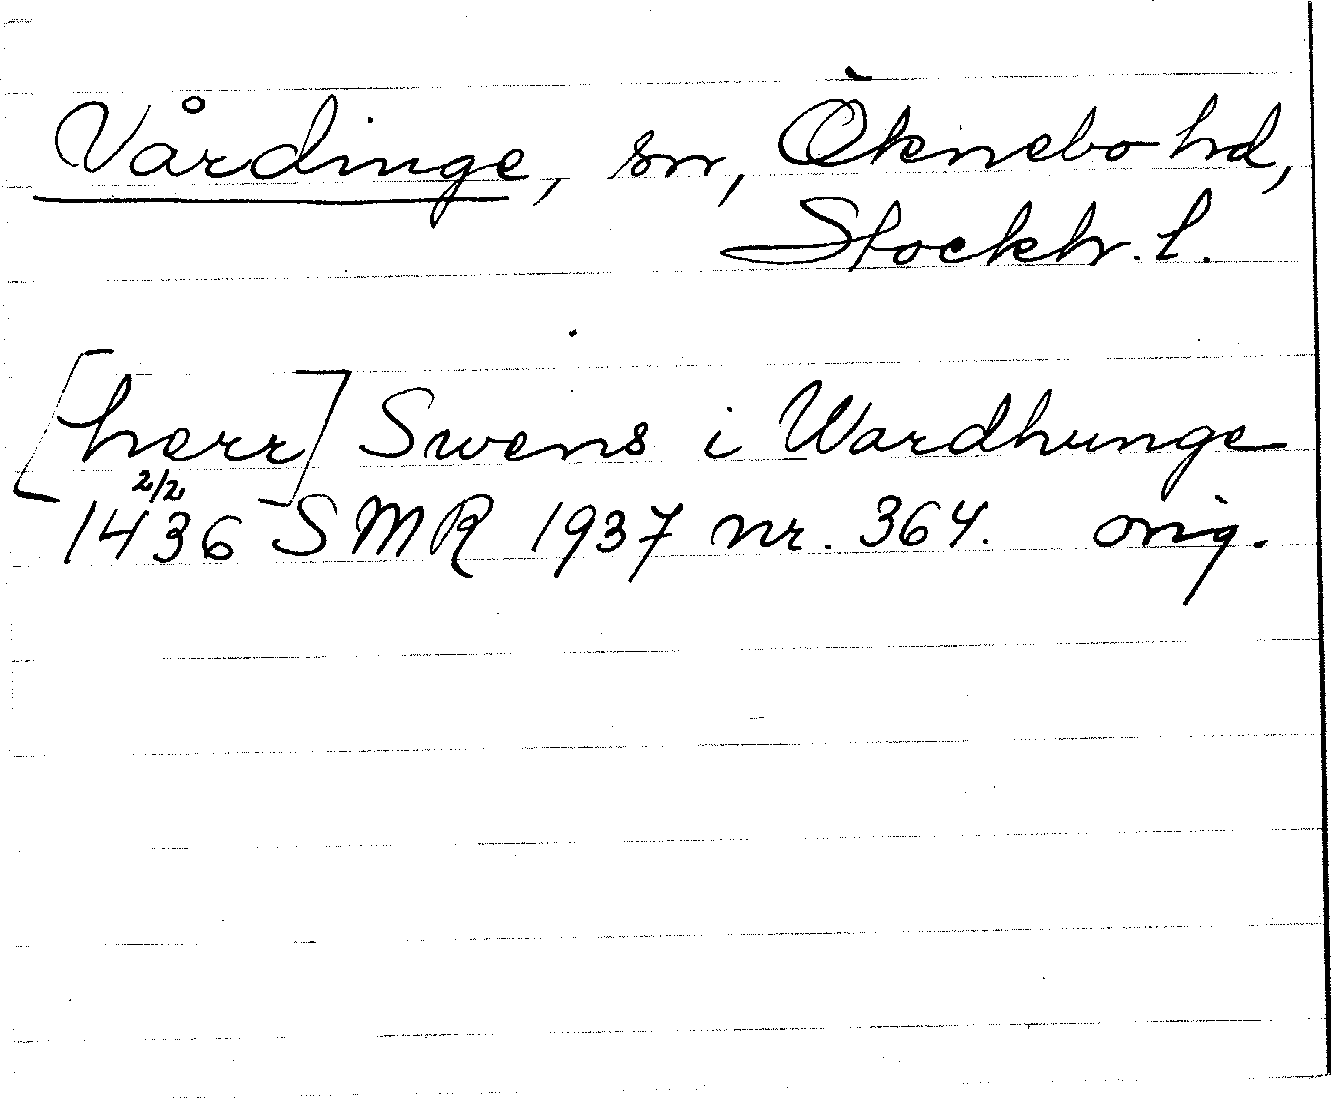 Vårdinge, sn, Öknebo hd,
Stockh. l.
[herr] Swens i Wardhunge
2/2
1436 SMR 1937 nr. 364. orig.